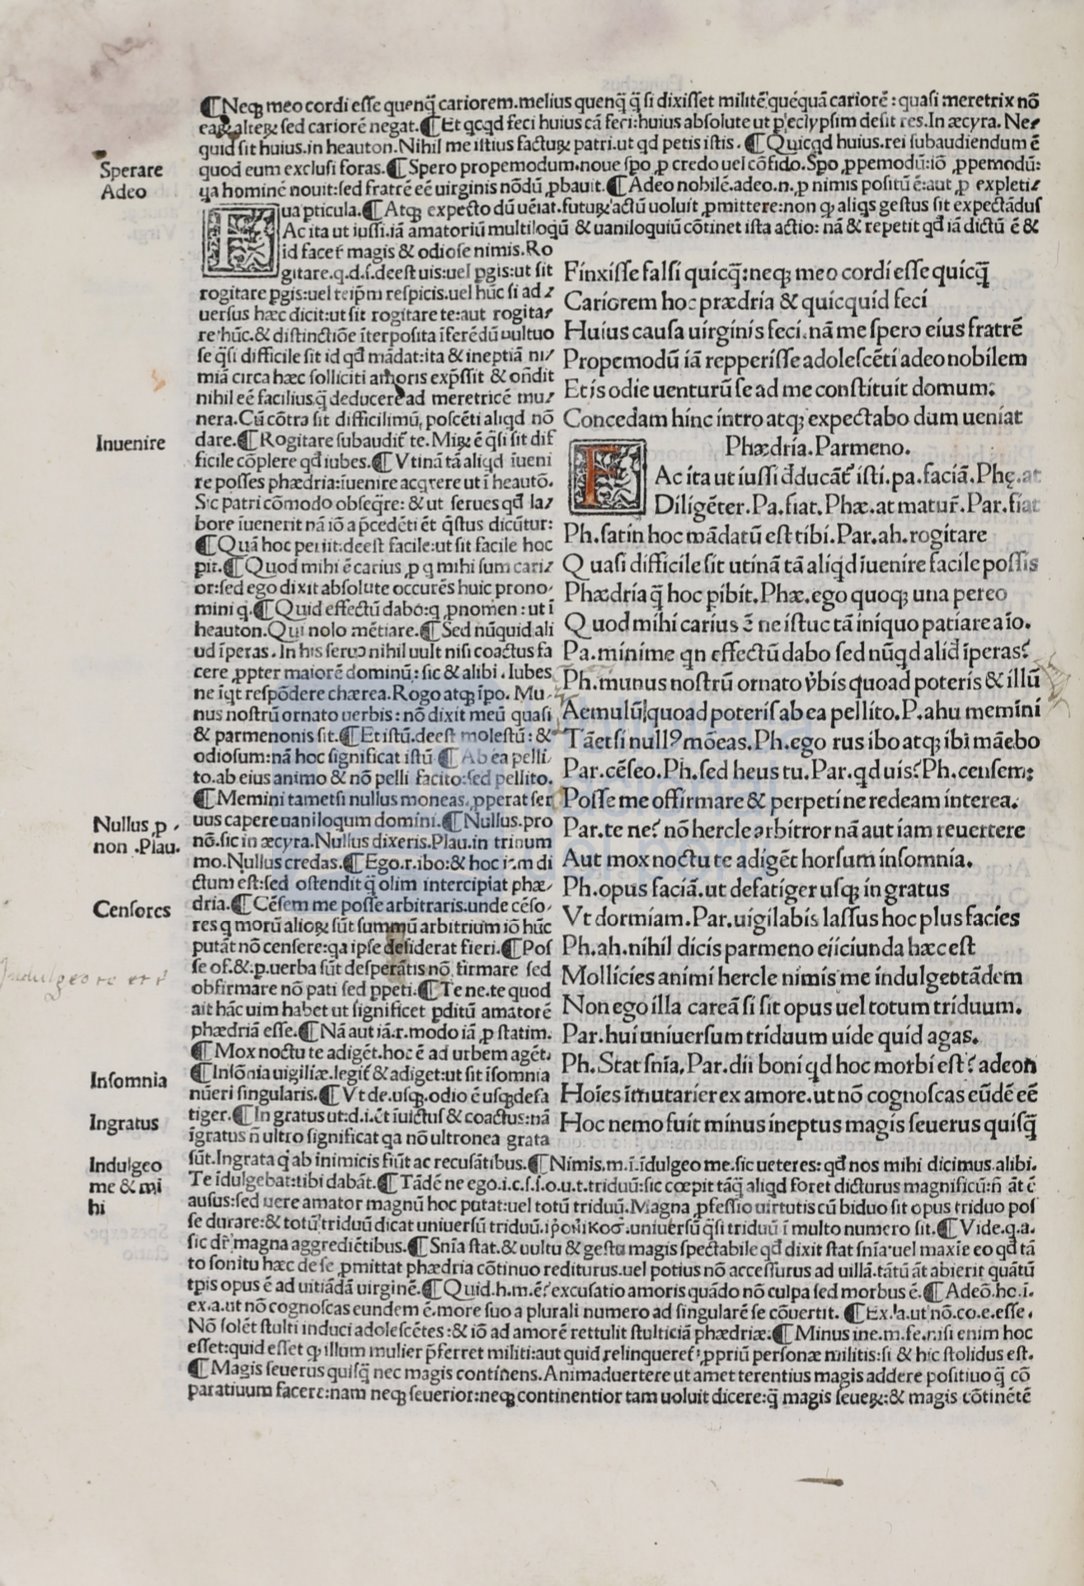 ¶Neqꝫ meo cordi esse quenq̄ cariorem.melius quenq̄ q̄ si dixisset militē quēquā cariorē : quasi meretrix nō
eaꝝ alteꝝ sed cariorē negat.¶Et qcqd feci huius cā feci:huius absolute ut p eclypsim desit res.In æcyra. Ne⸗
quid sit huius.in heauton.Nihil me istius factuꝝ patri.ut qd petis istis. ¶Quicqd huius.rei subaudiendum ē
Sperare
Adeo
quod eum exclusi foras.¶Spero propemodum.noue spo ꝓ credo uel cōfido.Spo ꝓpemodū:iō ꝓpemodū:
qa hominē nouit:sed fratrē eē uirginis nōdū ꝓbauit.¶Adeo nobilē.adeo.n.ꝓ nimis positū ē:aut ꝓ expleti⸗
ua pticula.¶Atqꝫ expecto dū uēiat.futuꝝ actū uoluit ꝓmittere:non qꝫ aliqs gestus sit expectādus
FAc ita ut iussi.iā amatoriū multiloqū & uaniloquiū cōtinet ista actio: nā & repetit qd iā dictū ē &
id facer̄ magis & odiose nimis.Ro
gitare.q.d.s.deest uis:uel pgis:ut sit
rogitare pgis:uel teipm respicis.uel hūc si ad⸗
uersus hæc dicit:ut sit rogitare te:aut rogita⸗
re hūc.& distinctiōe īterposita īferēdū uultuo
se q̄si difficile sit id qd mādat:ita & ineptiā ni⸗
miā circa hæc solliciti amoris exp̄ssit & on̄dit
nihil eē facilius.q̄ deducere ad meretricē mu⸗
nera.Cū cōtra sit difficilimū, poscēti aliqd nō
Inuenire
dare.¶Rogitare subaudit̄ te.Miꝝ ē q̄si sit dif
ficile cōplere qd iubes.¶Vtinā tā aliqd īueni
re posses phædria:īuenire acqrere ut ī heautō.
Sic patri cōmodo obseqre: & ut serues qd la⸗
bore īuenerit nā iō a p̄cedēti ēt q̄stus dicūtur:
¶Quā hoc periit:deest facile:ut sit facile hoc
pit.¶Quod mihi ē carius ꝓ q mihi sum cari⸗
or:sed ego dixit absolute occurēs huic prono⸗
mini q.¶Quid effectū dabo:q ꝓnomen : ut ī
heauton.Qui nolo mētiare.¶Sed nūquid ali
ud īperas.In his seruo nihil uult nisi coactus fa
cere ꝓpter maiorē dominū: sic & alibi . Iubes
ne īqt respōdere chærea.Rogo atqꝫ īpo. Mu⸗
nus nostrū ornato uerbis : nō dixit meū quasi
& parmenonis sit.¶Et istū.deest molestū: &
odiosum:nā hoc significat istū ¶Ab ea pelli
to.ab eius animo & nō pelli facito:sed pellito.
¶Memini tametsi nullus moneas. ꝓperat ser
Nullus ꝓ
non .Plau.
uus capere uaniloqum domini.¶Nullus.pro
nō.sic in æcyra.Nullus dixeris.Plau.in trinum
mo.Nullus credas.¶Ego.r.ibo:& hoc ir.m di
ctum est:sed ostendit q̄ olim intercipiat phæ⸗
Censores
dria.¶Cēsem me posse arbitraris.unde cēso⸗
res q morū alioꝝ sūt summū arbitrium iō hūc
putāt nō censere:qa ipse desiderat fieri.¶Pos
se of.&.p.uerba sūt desperātis nō firmare sed
obfirmare nō pati sed ppeti.¶Te ne.te quod
ait hāc uim habet ut significet pditū amatorē
phædriā esse.¶Nā aut iā.r.modo iā ꝓ statim.
¶Mox noctu te adigēt.hoc ē ad urbem agēt.
Insomnia
¶Insōnia uigiliæ.legit̄ & adiget:ut sit īsomnia
nūeri singularis.¶Vt de.usqꝫ.odio ē usqꝫ defa
Ingratus
tiger.¶In gratus ut:d.i.ēt īuictus & coactus:nā
īgratus n̄ ultro significat qa nō ultronea grata
Finxisse falsi quicq̄:neqꝫ meo cordi esse quicq̄
Cariorem hoc prædria & quicquid feci
Huius causa uirginis feci.nā me spero eius fratrē
Propemodū iā repperisse adolescēti adeo nobilem
Et is odie uenturū se ad me constituit domum:
Concedam hinc intro atqꝫ expectabo dum ueniat
Phædria.Parmeno.
FAc ita ut iussi d̄ducāt̄ isti.pa.faciā.Phę.at
Diligēter.Pa.fiat.Phæ.at matur̄.Par.fiat
Ph.satin hoc mādatū est tibi.Par.ah.rogitare
Quasi difficile sit utinā tā aliqd īuenire facile possis
Phædria q̄ hoc pibit.Phæ.ego quoqꝫ una pereo
Quod mihi carius ē ne istuc tā iniquo patiare aīo.
Pa.minime qn effectū dabo sed nūqd aliđ īperas?
Ph.munus nostrū ornato v̄bis quoad poteris & illū
Aemulū quoad poteris ab ea pellito.P.ahu memini
Tāetsi null⁹ mōeas.Ph.ego rus ibo atqꝫ ibi māebo
Par.cēseo.Ph.sed heus tu.Par.qd uis?Ph.censem:
Posse me offirmare & perpeti ne redeam interea.
Par.te ne? nō hercle arbitror nā aut iam reuertere
Aut mox noctu te adigēt horsum insomnia.
Ph.opus faciā.ut defatiger usqꝫ in gratus
Vt dormiam.Par.uigilabis lassus hoc plus facies
Ph.ah.nihil dicis parmeno eiiciunda hæc est
Mollicies animi hercle nimis me indulgeo tādem
Non ego illa careā si sit opus uel totum triduum.
Par.hui uniuersum triduum uide quid agas.
Ph.Stat snīa.Par.dii boni qd hoc morbi est? adeon
Hoīes īmutarier ex amore.ut nō cognoscas eūdē eē
Hoc nemo fuit minus ineptus magis seuerus quisq̄
Indulgeo
me & mi
hi
sūt.Ingrata q ab inimicis fiūt ac recusātibus.¶Nimis.m.i.īdulgeo me.sic ueteres: qd nos mihi dicimus.alibi.
Te idulgebat:tibi dabāt.¶Tādē ne ego.i.c.s.s.o.u.t.triduū:sic cœpit tāq̄ aliqd foret dicturus magnificū:n̄ āt ē
ausus:sed uere amator magnū hoc putat:uel totū triduū.Magna ꝓfessio uirtutis cū biduo sit opus triduo pos
se durare:& totū triduū dicat uniuersū triduū.uniuersū q̄si triduū ī multo numero sit.¶Vide.q.a.
sic dr̄ magna aggrediētibus.¶Snīa stat.& uultu & gestu magis spectabile qd dixit stat snīa uel maxīe eo qd tā
to sonitu hæc de se ꝓmittat phædria cōtinuo rediturus.uel potius nō accessurus ad uillā.tātū āt abierit quātū
tpis opus ē ad uitiādā uirginē.¶Quid.h.m.ē? excusatio amoris quādo nō culpa sed morbus ē.¶Adeō.ho.i.
ex.a.ut nō cognoscas eundem ē.more suo a plurali numero ad singularē se cōuertit. ¶Ex.a.ut nō.co.e.esse.
Nō solēt stulti induci adolescētes:& iō ad amorē rettulit stulticiā phædriæ.¶Minus ine.m.se.nisi enim hoc
esset:quid esset qꝫ illum mulier p̄ferret militi:aut quid relinqueret̄ ꝓpriū personæ militis:si & hic stolidus est.
¶Magis seuerus quisq̄ nec magis continens.Animaduertere ut amet terentius magis addere positiuo q̄ cō
paratiuum facere:nam neqꝫ seuerior:neqꝫ continentior tam uoluit dicere:q̄ magis seueꝝ:& magis cōtinētē